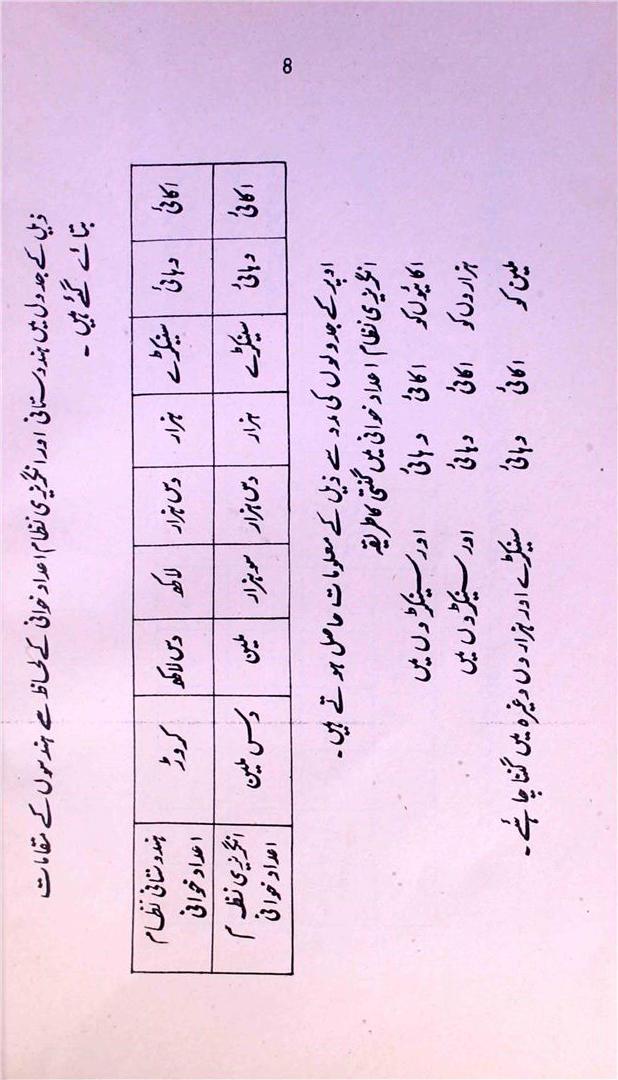 8
ذیل کے جدول میں ہندوستانی اور انگریزی نظام اعداد خوانی کے لحاظ سے ہندسوں کے مقامات
بتائے گئے ہیں۔
اکائی دہائی سینکڑے ہزار دس ہزار لاکھ دس لاکھ کروڑ ہندوستانی نظام اعداد خوانی
اکائی دہائی سینکڑے ہزار دس ہزار سو ہزار ملین دس ملین انگریزی نظام اعداد خوانی
اوپر کے جدولوں کی مدد سے ذیل کے معلومات حاصل ہوتے ہیں۔
انگریزی نظام اعداد خوانی میں گنتی کا طریقہ
اکائیوں کو اکائی دہائی اور سینکڑوں میں
ہزاروں کو اکائی دہائی اور سینکڑوں میں
ملین کو اکائی دہائی سینکڑے اور ہزاروں وغیرہ میں گننا چاہئے۔